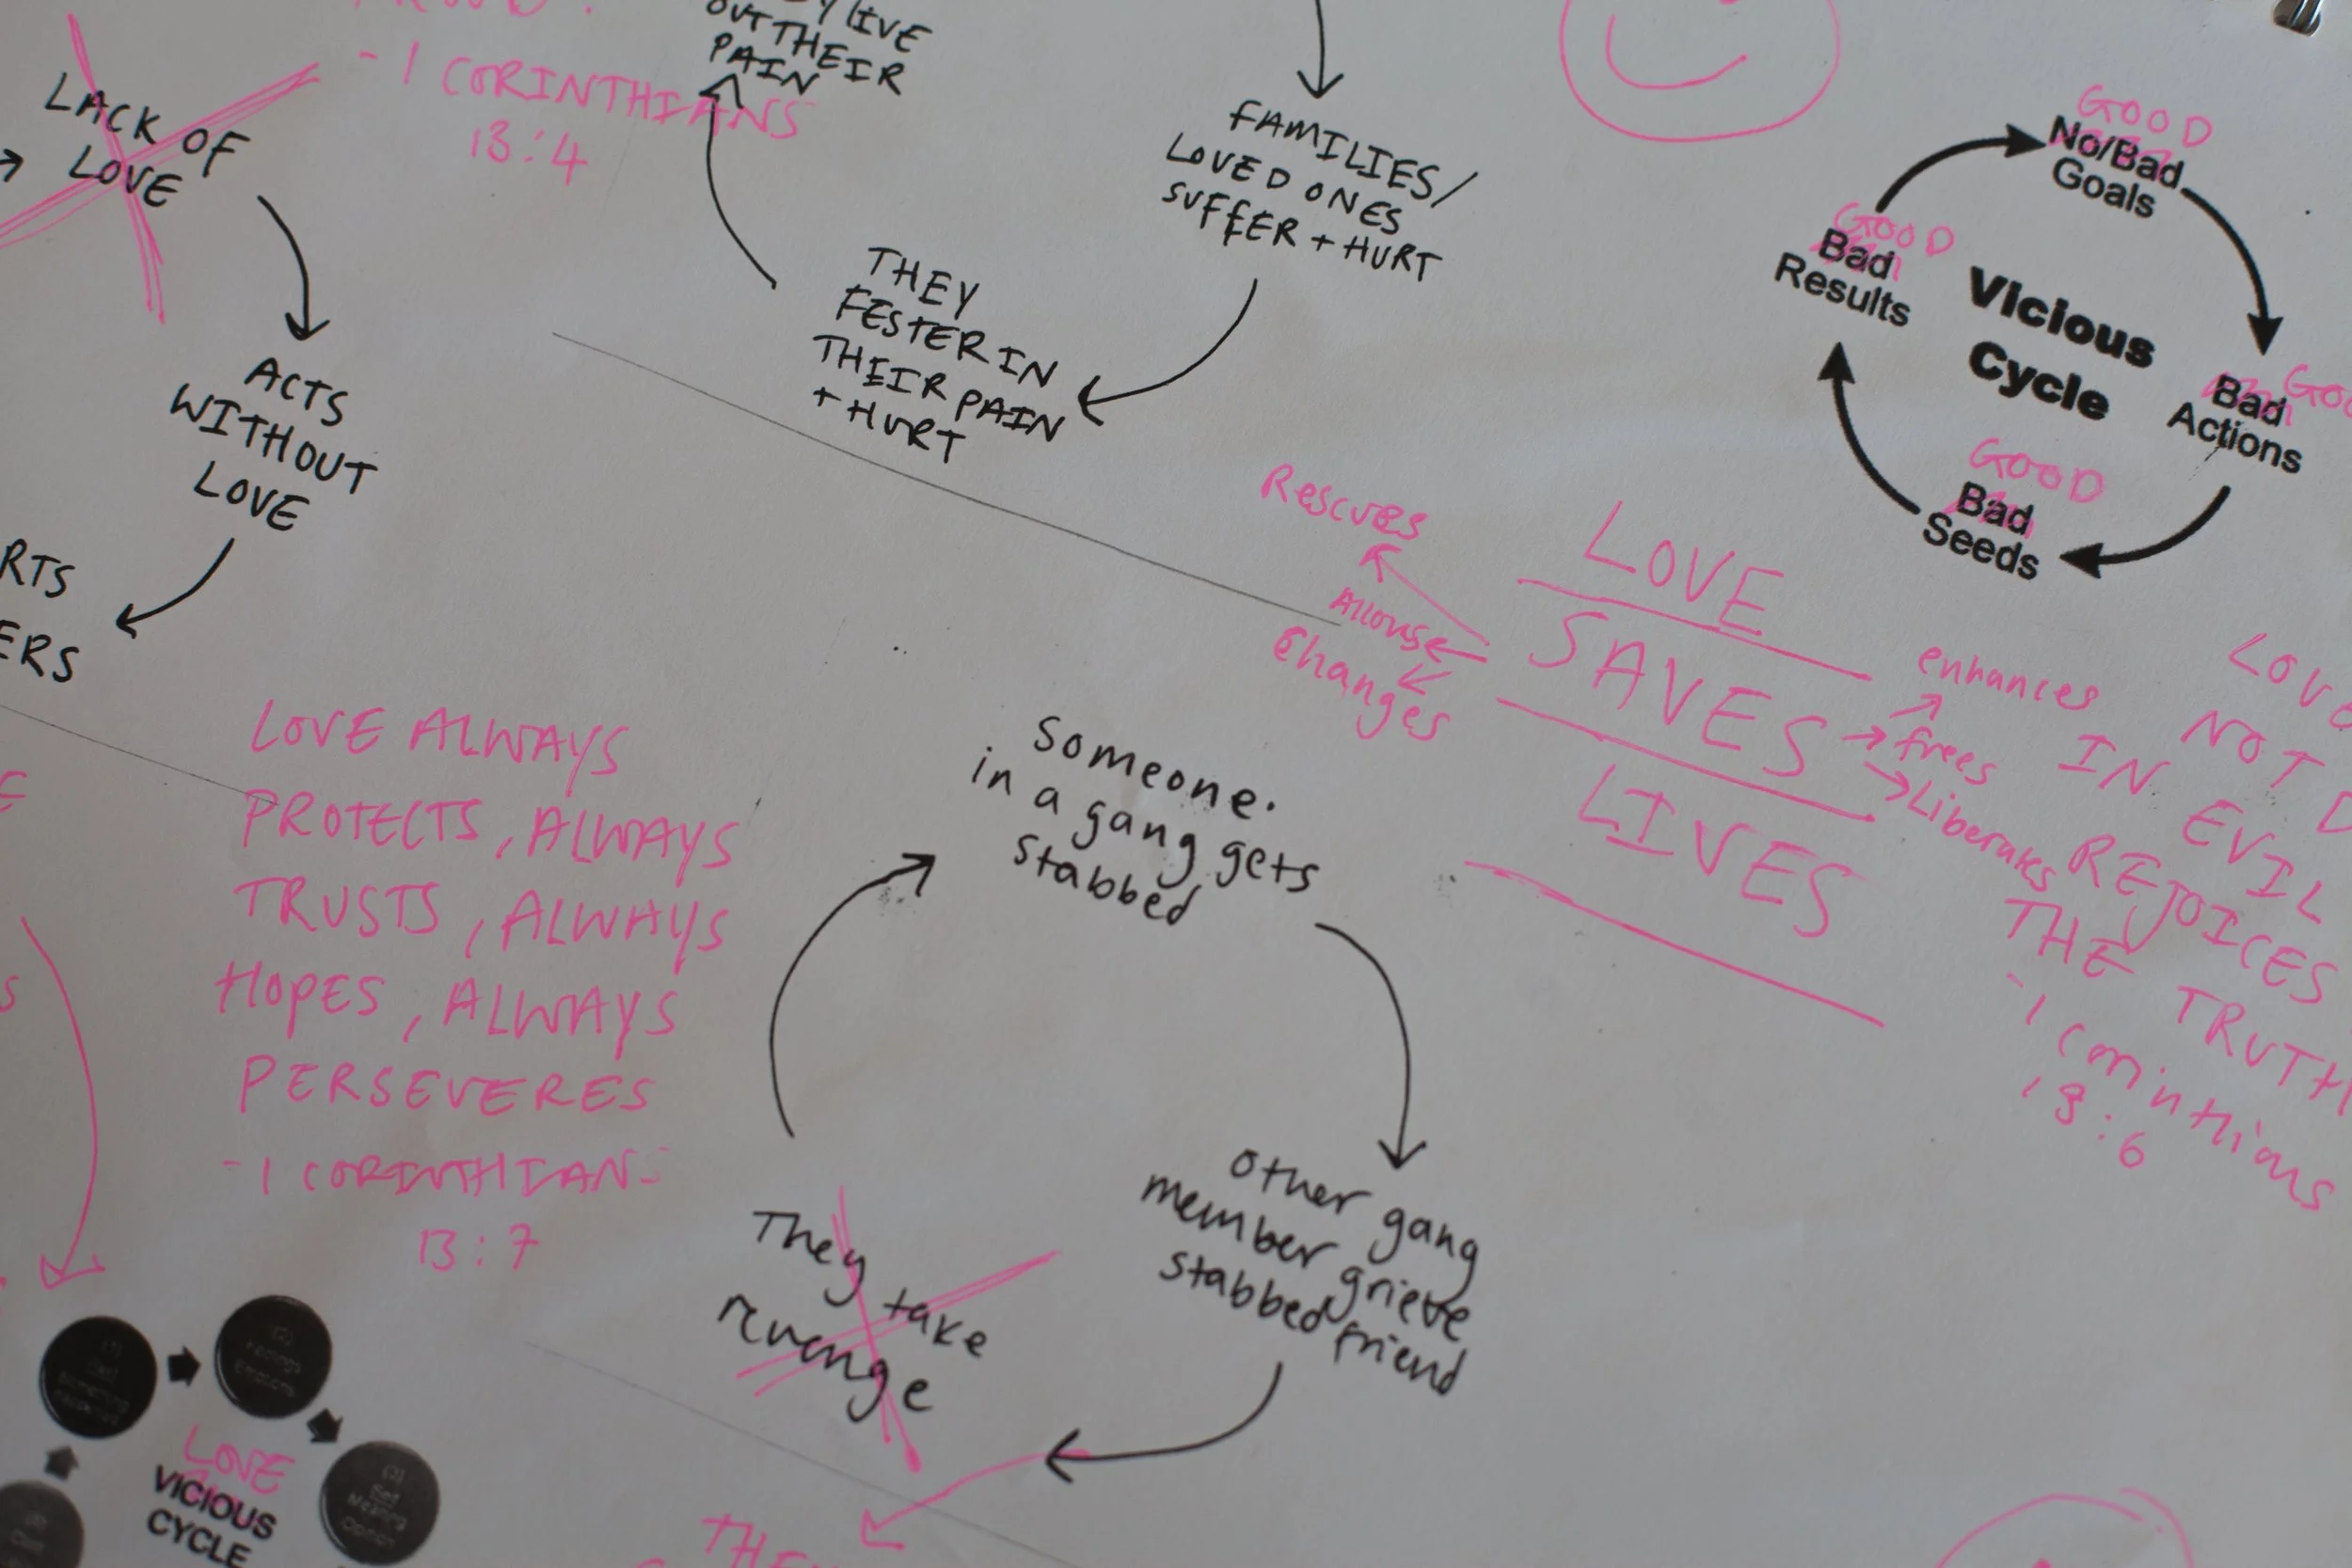 LACK OF
LOVE
ACTS
WITHOUT
LOVE
RTS
ERS
- 1 CORINTHIANS
13:4
LIVE
OUT THEIR
PAIN
FAMILIES/
LOVED ONES
SUFFER + HURT
THEY
FESTER IN
THEIR PAIN
+ HURT
GOOD
No/Bad
Goals
GOOD
Bad
Results
Vicious
Cycle
GOO
Bad
Actions
GOOD
Bad
Seeds
Rescues
Changes
LOVE
SAVES
LIVES
enhances
frees
Liberates
LOVE
NOT D
IN EVIL
REJOICES
THE TRUTH
- 1 Corinthians
13:6
LOVE ALWAYS
PROTECTS, ALWAYS
TRUSTS, ALWAYS
HOPES, ALWAYS
PERSEVERES
- 1 CORINTHIANS
13:7
Someone
in a gang gets
stabbed
Other gang
member grieve
stabbed friend
They take
revenge
LOVE
VICIOUS
CYCLE
THEY